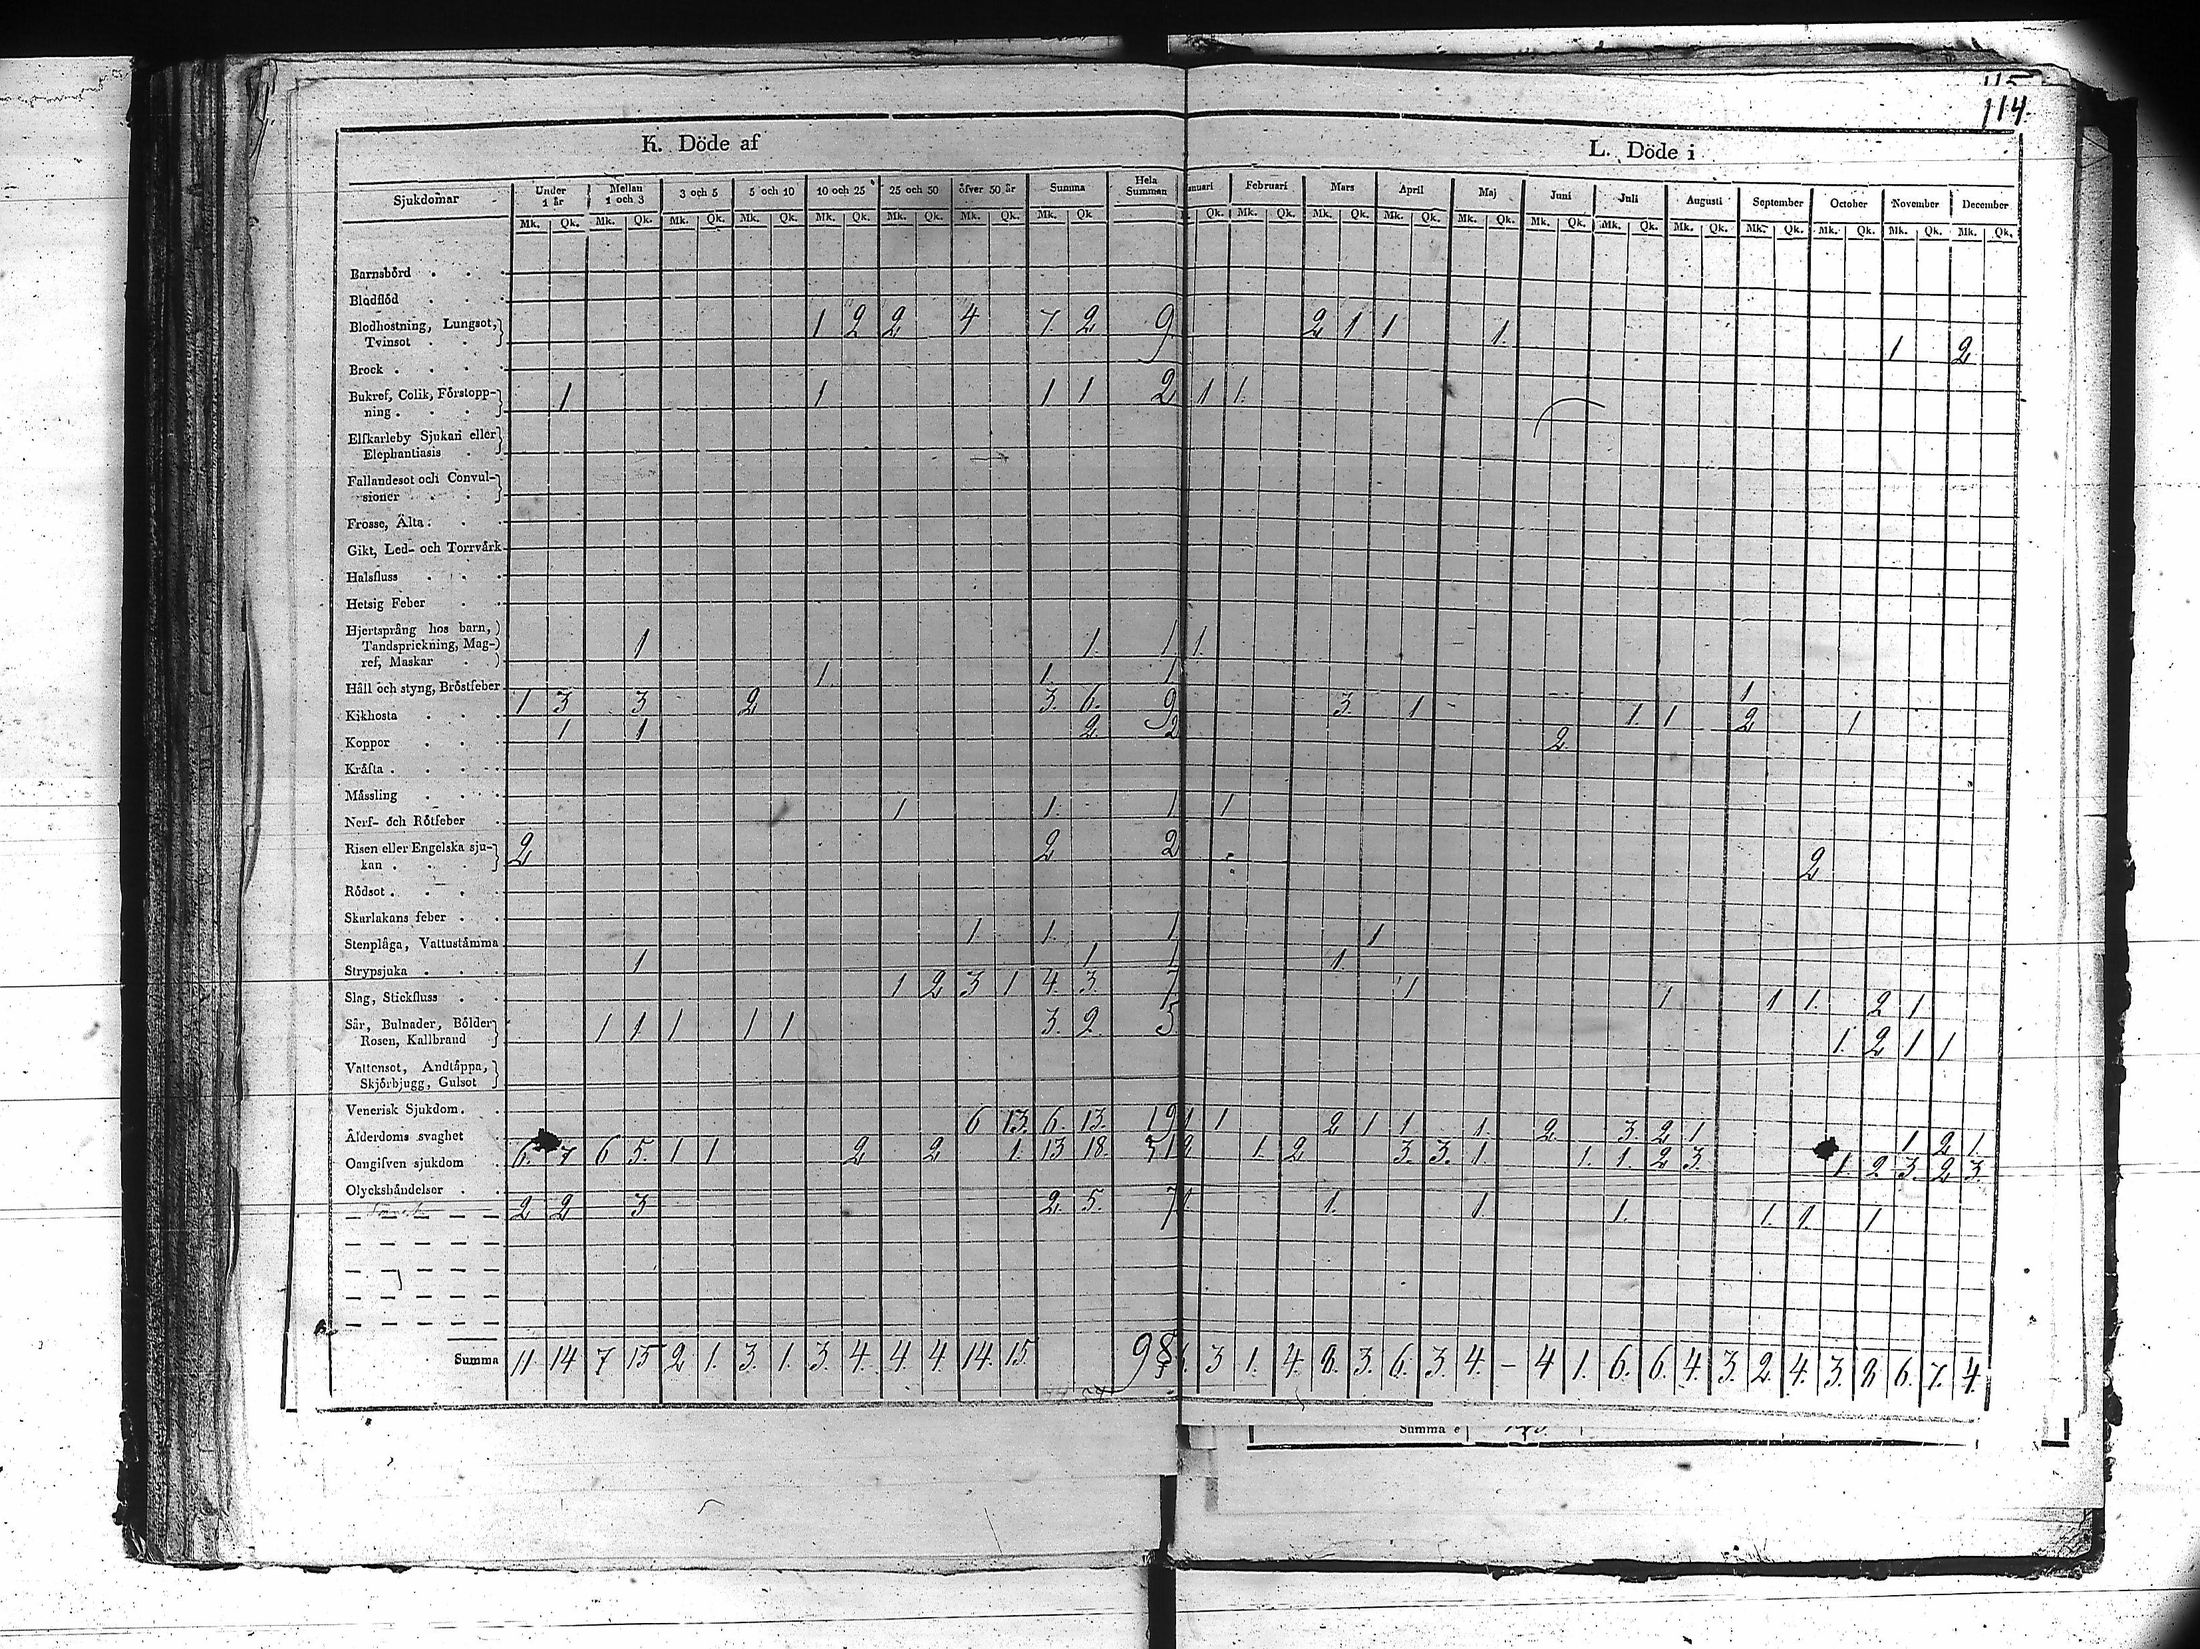 115
114.
K. Döde af
L. Döde i
Sjukdomar Under 1 år Mellan 1 och 3 3 och 5 5 och 10 10 och 25 25 och 50 öfver 50 år Summa Hela Summan anuari Februari Mars April Maj Juni Juli Augusti September October November December
Mk. Qk. Mk. Qk. Mk. Qk. Mk. Qk. Mk. Qk. Mk. Qk. Mk. Qk. Mk. Qk Qk. Mk. Qk. Mk. Qk. Mk. Qk. Mk. Qk. Mk. Qk. Mk. Qk. Mk. Qk. Mk. Qk. Mk. Qk. Mk. Qk. Mk. Qk.
Barnsbörd
Blodflöd
Blodhostning, Lungsot,
Tvinsot 1 2 2 4 7. 2 9 2 1 1 1. 1 2
Brock
Bukref, Colik, Förstopp-
ning 1 1 1 1 2 1 1.
Elfkarleby Sjukan eller
Elephantiasis
Fallandesot och Convul-
sioner
Frosse, Älta
Gikt, Led- och Torrvärk
Halsfluss
Hetsig Feber
Hjertsprång hos barn,
Tandsprickning, Mag-
ref, Maskar 1 1. 1 1.
Håll och styng, Bröstfeber 1. 1. 1 1
Kikhosta 1 3 3 2 3. 6. 9 3. 1 1. 1 2 1
Koppor 1 1 2 2 2.
Kräfta
Mässling
Nerf- och Rötfeber 1 1. 1 1
Risen eller Engelska sju-
kan 2 2 2 2
Rödsot
Skarlakans feber
Stenplåga, Vattustämma 1. 1. 1 1
Strypsjuka 1 1 1 1.
Slag, Stickfluss 1 2 3 1 4. 3. 7 1 1 1 1. 2 1
Sår, Bulnader, Bölder
Rosen, Kallbrand 1 1. 1 1 1 3. 2. 5. 1. 2 1 1
Vattensot, Andtäppa,
Skjörbjugg, Gulsot
Venerisk Sjukdom
Ålderdoms svaghet 6 13. 6. 13. 19 1 1 2 1 1 1. 2. 3. 2 1 1 2 1.
Oangifven sjukdom 6. 7 6 5. 1 1 2 2 1. 13 18. 31 2. 1. 2 3. 3. 1. 1. 1. 2 3. 1. 2. 3. 2 3.
Olyckshändelser
2 2 3 2. 5. 7 1. 1. 1. 1. 1. 1. 1
Summa 11. 14 7 15 2 1. 3. 1. 3. 4. 4. 4 14. 15. 98 3 1. 4. 8. 3. 6. 3. 4. – 4 1. 6. 6. 4. 3. 2. 4. 3. 8 6. 7. 4.
Summa